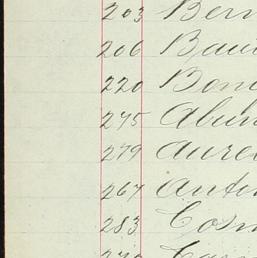 203 Bern
206 Baui
220 Bona
275 Abun
279 Aurel
267 Anto
283 Cosm